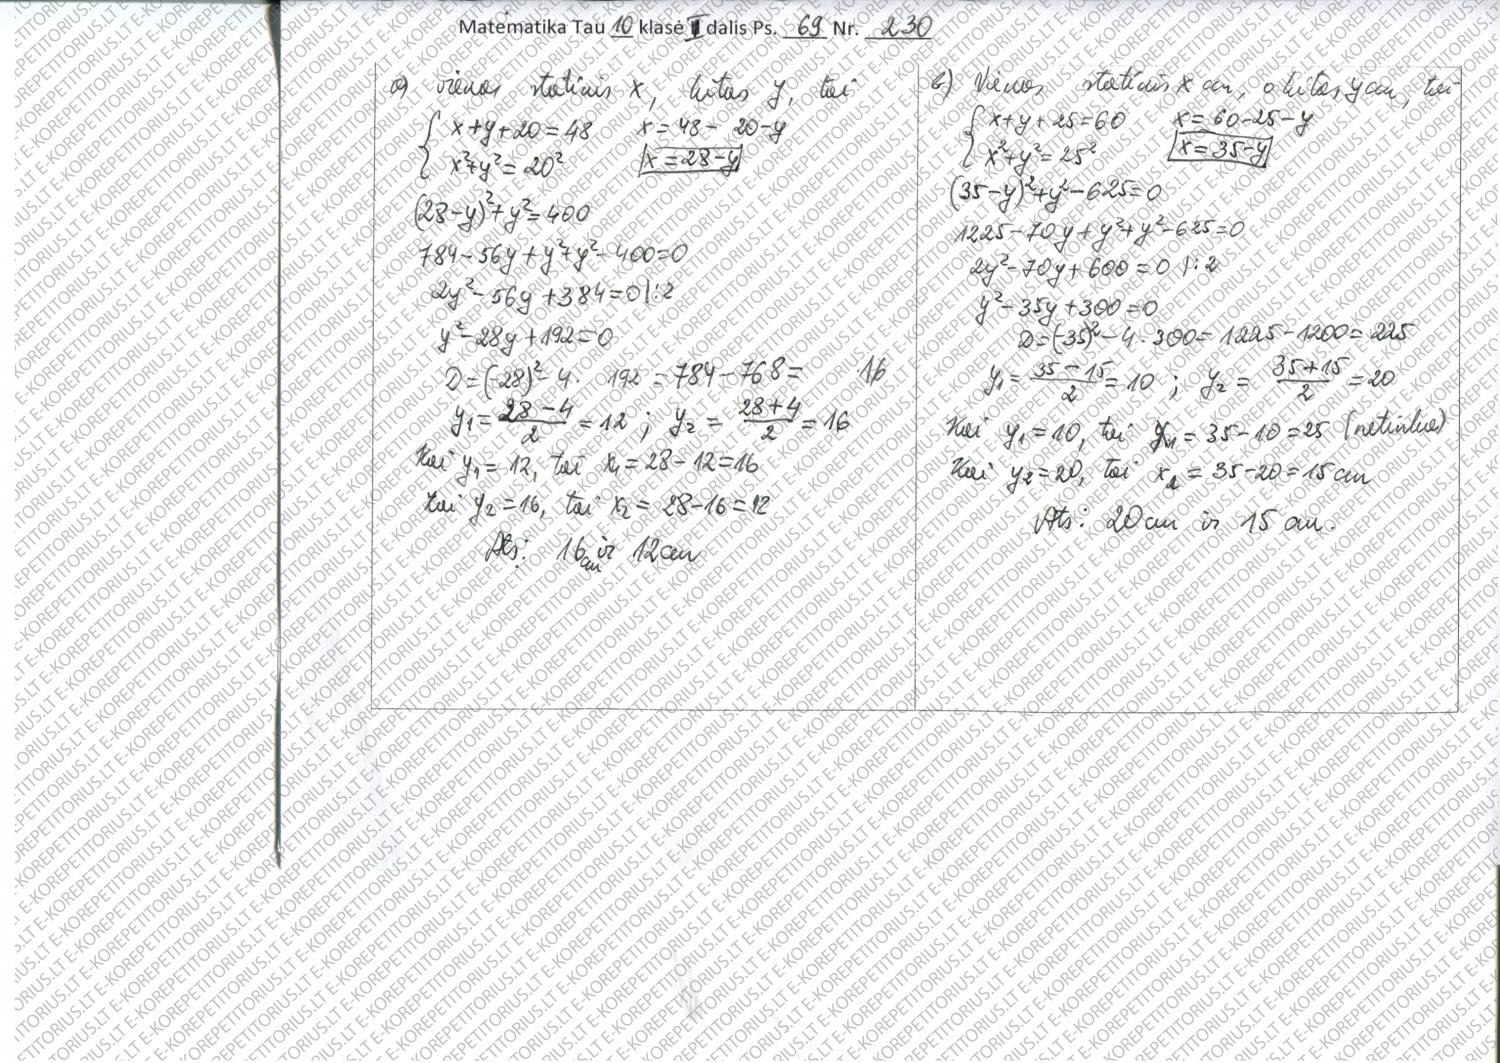 Matematika Tau 10 klasė II dalis Ps. 69 Nr. 230
a) vienas statinis x, kitas y, tai
x+y+20=48 x=48-20-y
x²+y²=20² x=28-y
(28-y)²+y²=400
784-56y+y²+y²-400=0
2y²-56y+384=0 |:2
y²-28y+192=0
D=(-28)²-4· 192=784-768= 16
y₁=(28-4)/2=12; y₂=(28+4)/2=16
Kai y₁=12, tai x₁=28-12=16
kai y₂=16, tai x₂=28-16=12
Ats: 16 cm ir 12 cm
b) Vienas statinis x cm, o kitas y cm, tai
x+y+25=60 x=60-25-y
x²+y²=25² x=35-y
(35-y)²+y²-625=0
1225-70y+y²+y²-625=0
2y²-70y+600=0 |:2
y²-35y+300=0
D=(-35)²-4·300=1225-1200=225
y₁=(35-15)/2=10; y₂=(35+15)/2=20
Kai y₁=10, tai x₁=35-10=25 (netinka)
Kai y₂=20, tai x₂=35-20=15 cm
Ats: 20 cm ir 15 cm.
E-KOREPETITORIUS.LT